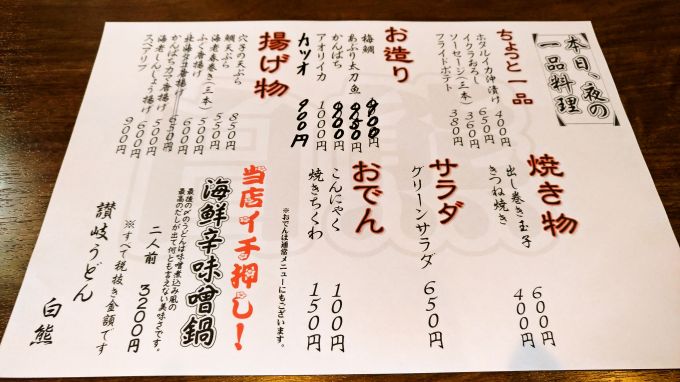 本日、夜の
一品料理
ちょっと一品
ホタルイカ沖漬け 400円
イクラおろし 650円
ソーセージ(三本) 360円
フライドポテト 380円
お造り
梅鯛
あぶり太刀魚
かんぱち
アオリイカ 1000円
カツオ 900円
揚げ物
穴子の天ぷら 850円
鯛天ぷら 550円
海老春巻き(三本) 550円
ふぐ唐揚げ 500円
タコ唐揚げ 650円
かんぱちカマ唐揚げ 500円
海老しんじょう揚げ 600円
スペアリブ 900円
焼き物
出し巻き玉子 600円
きつね焼き 400円
サラダ
グリーンサラダ 650円
おでん
こんにゃく 100円
焼きちくわ 150円
※おでんは通常メニューにもございます。
当店イチ押し!
海鮮辛味噌鍋
最後の〆のうどんは味噌煮込み風の
最高のだしが出て何とも言えない美味さです。
二人前 3200円
※すべて税抜き金額です
讃岐うどん 白熊